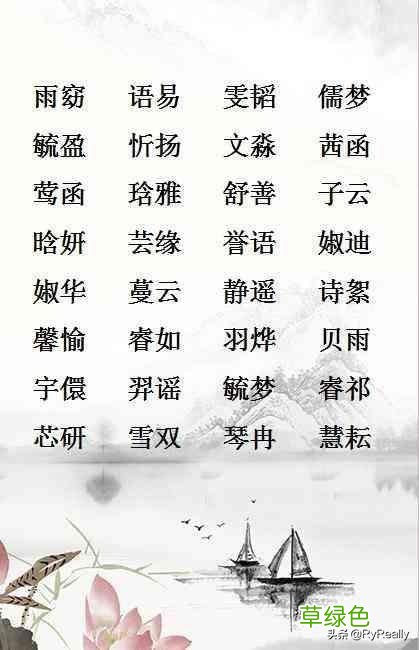 雨窈 语易 雯韬 儒梦
毓盈 忻扬 文淼 茜函
莺函 琀雅 舒善 子云
晗妍 芸缘 誉语 婌迪
婌华 蔓云 静遥 诗絮
馨愉 睿如 羽烨 贝雨
宇儇 羿谣 毓梦 睿祁
芯研 雪双 琴冉 慧耘
草绿色
头条 @RyReally